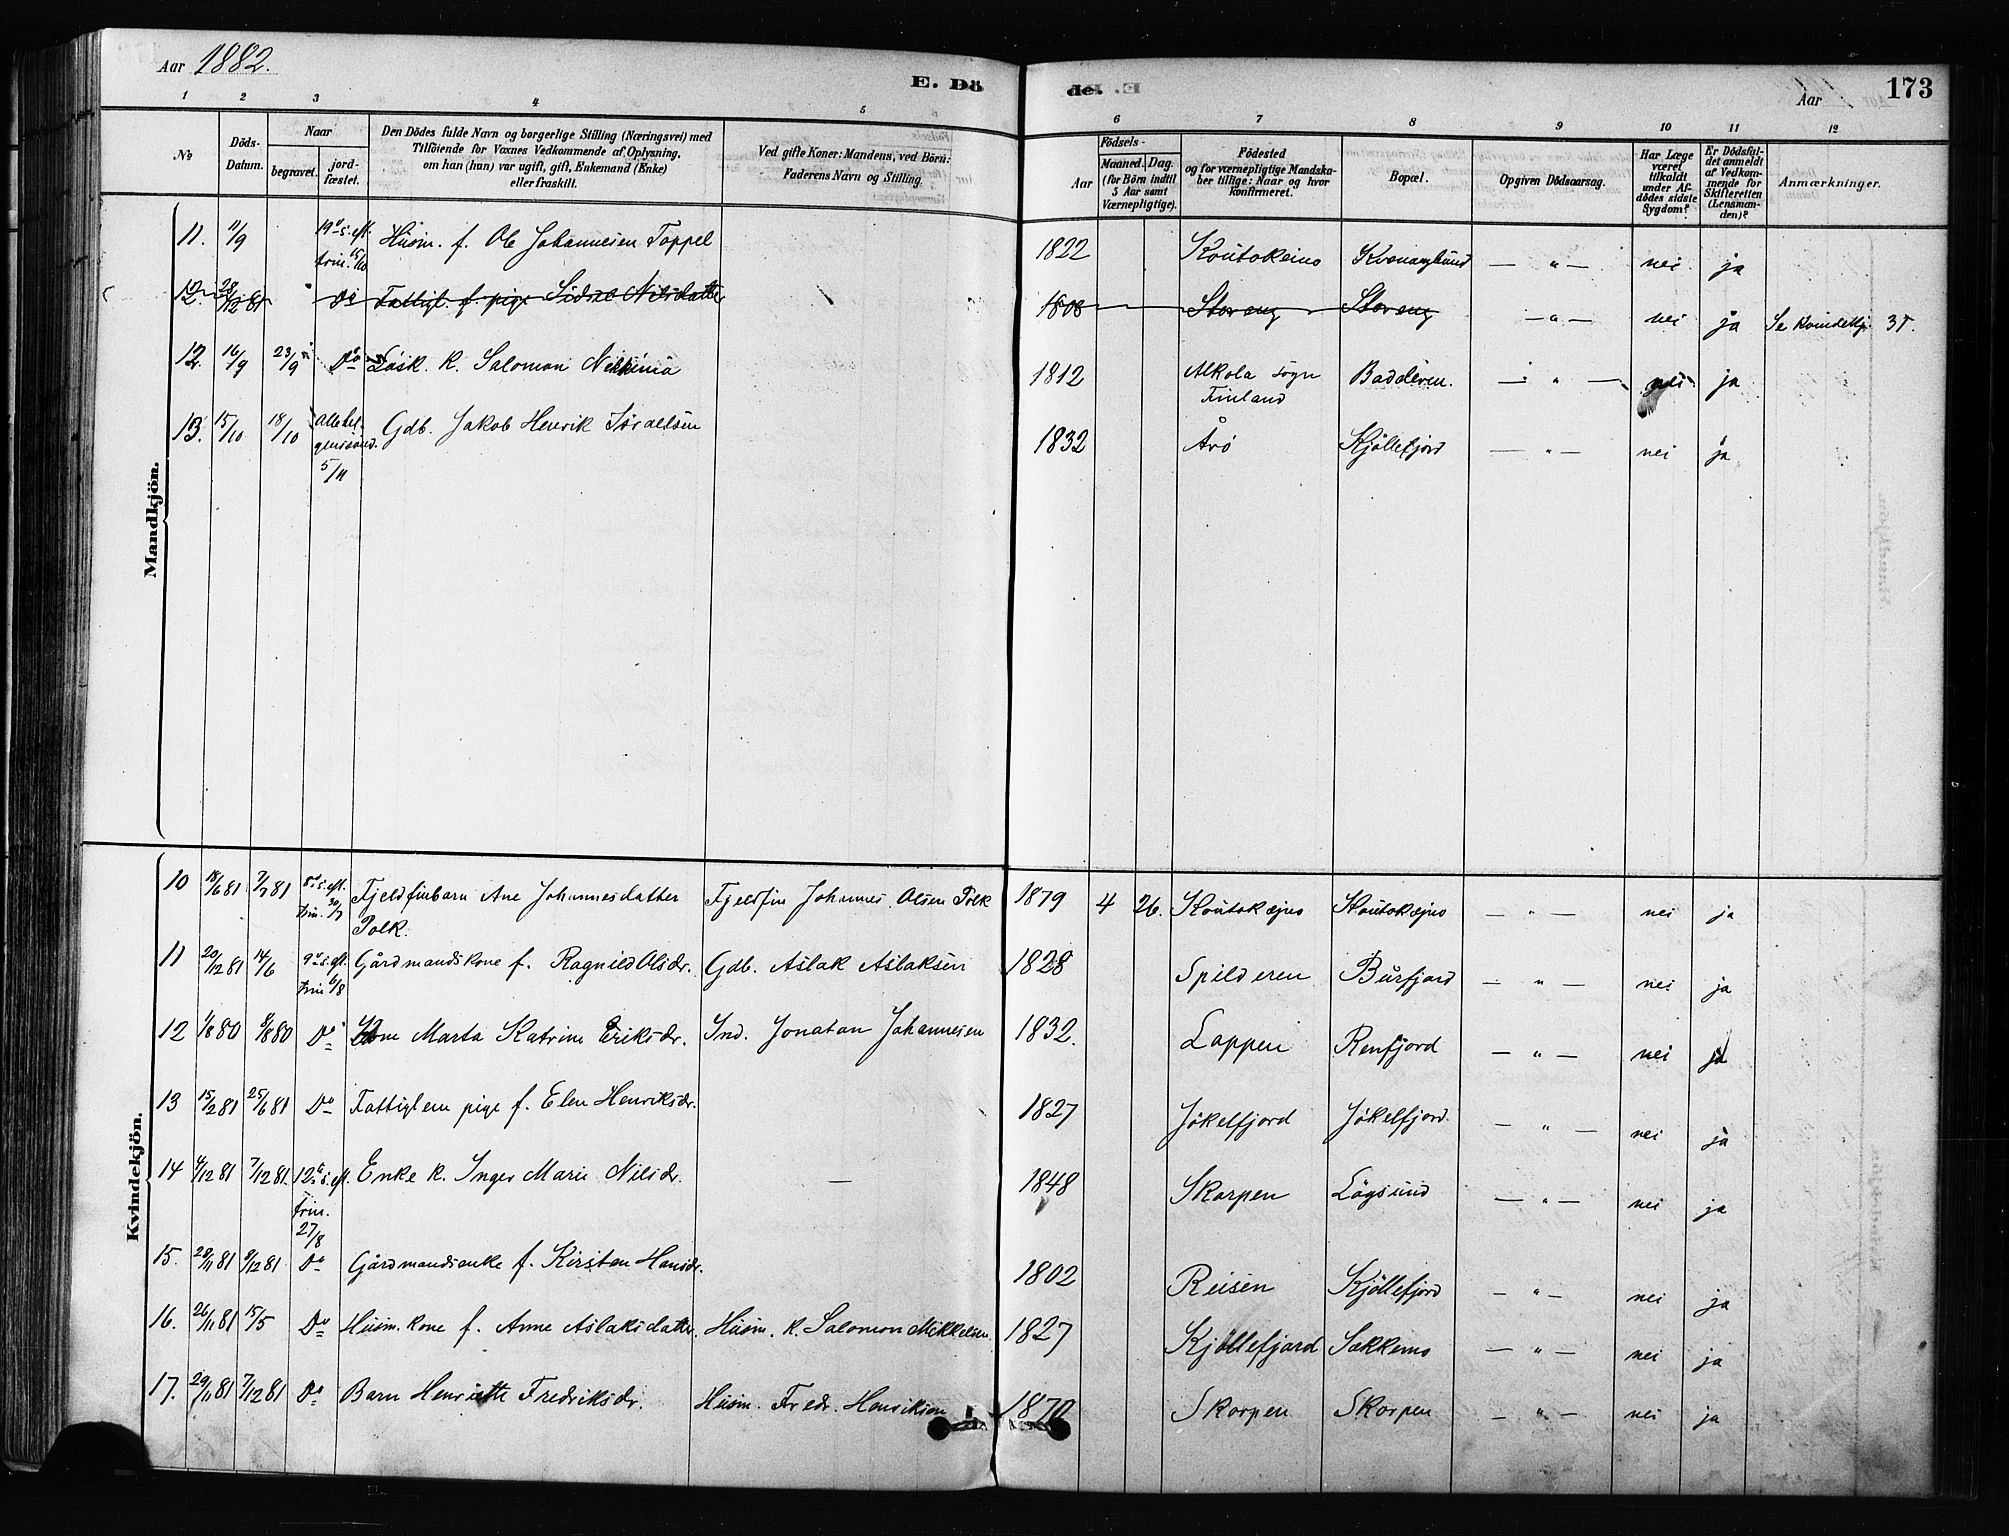 Aar 1882.
E. Dö
de.
Aar
173
1 2 3 4 5
6 7 8 9 10 11 12
No
Döds-Datum.
Naar
begravet.
jord-fæstet.
Den Dödes fulde Navn og borgerlige Stilling (Næringsvei) med
Tilföiende for Voxnes Vedkommende af Oplysning,
om han (hun) var ugift, gift, Enkemand (Enke)
eller fraskilt.
Ved gifte Koner: Mandens, ved Börn:
Faderens Navn og Stilling.
Födsels-
Aar
Maaned. Dag.
(for Börn indtil
5 Aar samt
Værnepligtige).
Födested
og for værnepligtige Mandska-
ber tillige: Naar og hvor
konfirmeret.
Bopæl.
Opgiven Dödsaarsag.
Har Læge
været
tilkaldt
under Af-
dödes sidste
Sygdom?
Er Dödsfal-
det anmeldt
af Vedkom-
mende for
Skifteretten
(Lensman-
den)?
Anmærkninger.
Mandkjön.
11. 11/9 19de s. eft. trin. 15/10 Husm. f. Ole Johannesen Toppel 1822 Koutokeino Kvænangsund — " — nei ja
12. 28/12 81 Do Fattigl. f. pige Sidsel Nilsdatter 1808 Storeng Storeng — " — nei ja Se Kvindekj. 31.
12. 16/9 23/9 Do Løsk. k. Salomon Nikkinia 1812 Alkola sogn Finland Badderen. — " — nei ja
13. 15/10 18/10 Allehel-gensönd. 5/11 Gdb. Jakob Henrik Israelsen 1832 Årö Kjöllefjord — " — nei ja
Kvindekjön.
10 18/6 81 7/7 81 8de s. eft. trin. 30/7 Fjeldfinbarn Ane Johannesdatter Polk. Fjeldfin Johannes Olsen Polk 1879 4 26. Koutokejno Koutokejno — " — nei ja
11 20/12 81 14/6 9de s. eft. trin 6/8 Gårdmandskone f. Ragnild Olsdr. Gdb. Aslak Aslaksen 1828 Spilderen Burfjord — " — nei ja
12 1/8 80 8/8 80 Do Kone Marta Katrine Eriksdr. Ind. Jonatan Johannesen 1832. Loppen Renfjord — " — nei ja
13 15/2 81 25/6 81 Do Fattiglem pige f. Elen Henriksdr. 1827 Jökelfjord Jökelfjord. — " — nei ja
14 4/12 81 7/12 81. 12te s. eft. Trin. 27/8 Enke k. Inger Marie Nilsdr. — 1848 Skorpen Lögsund — " — nei ja
15. 28/11 81 9/12 81 Do Gårdmandsenke f. Kirsten Hansdr. 1802 Reisen Kjöllefjord — " — nei ja
16. 26/11 81 15/5 Do Husm. kone f. Anne Aslaksdatter. Husm. k. Salomon Mikkelsen. 1827 Kjöllefjord Sækkemo — " — nei ja
17. 29/11 81 7/12 81 Do Barn Henriette Fredriksdr. Husm. Fredr. Henriksen 1870 Skorpen Skorpen — " — nei ja